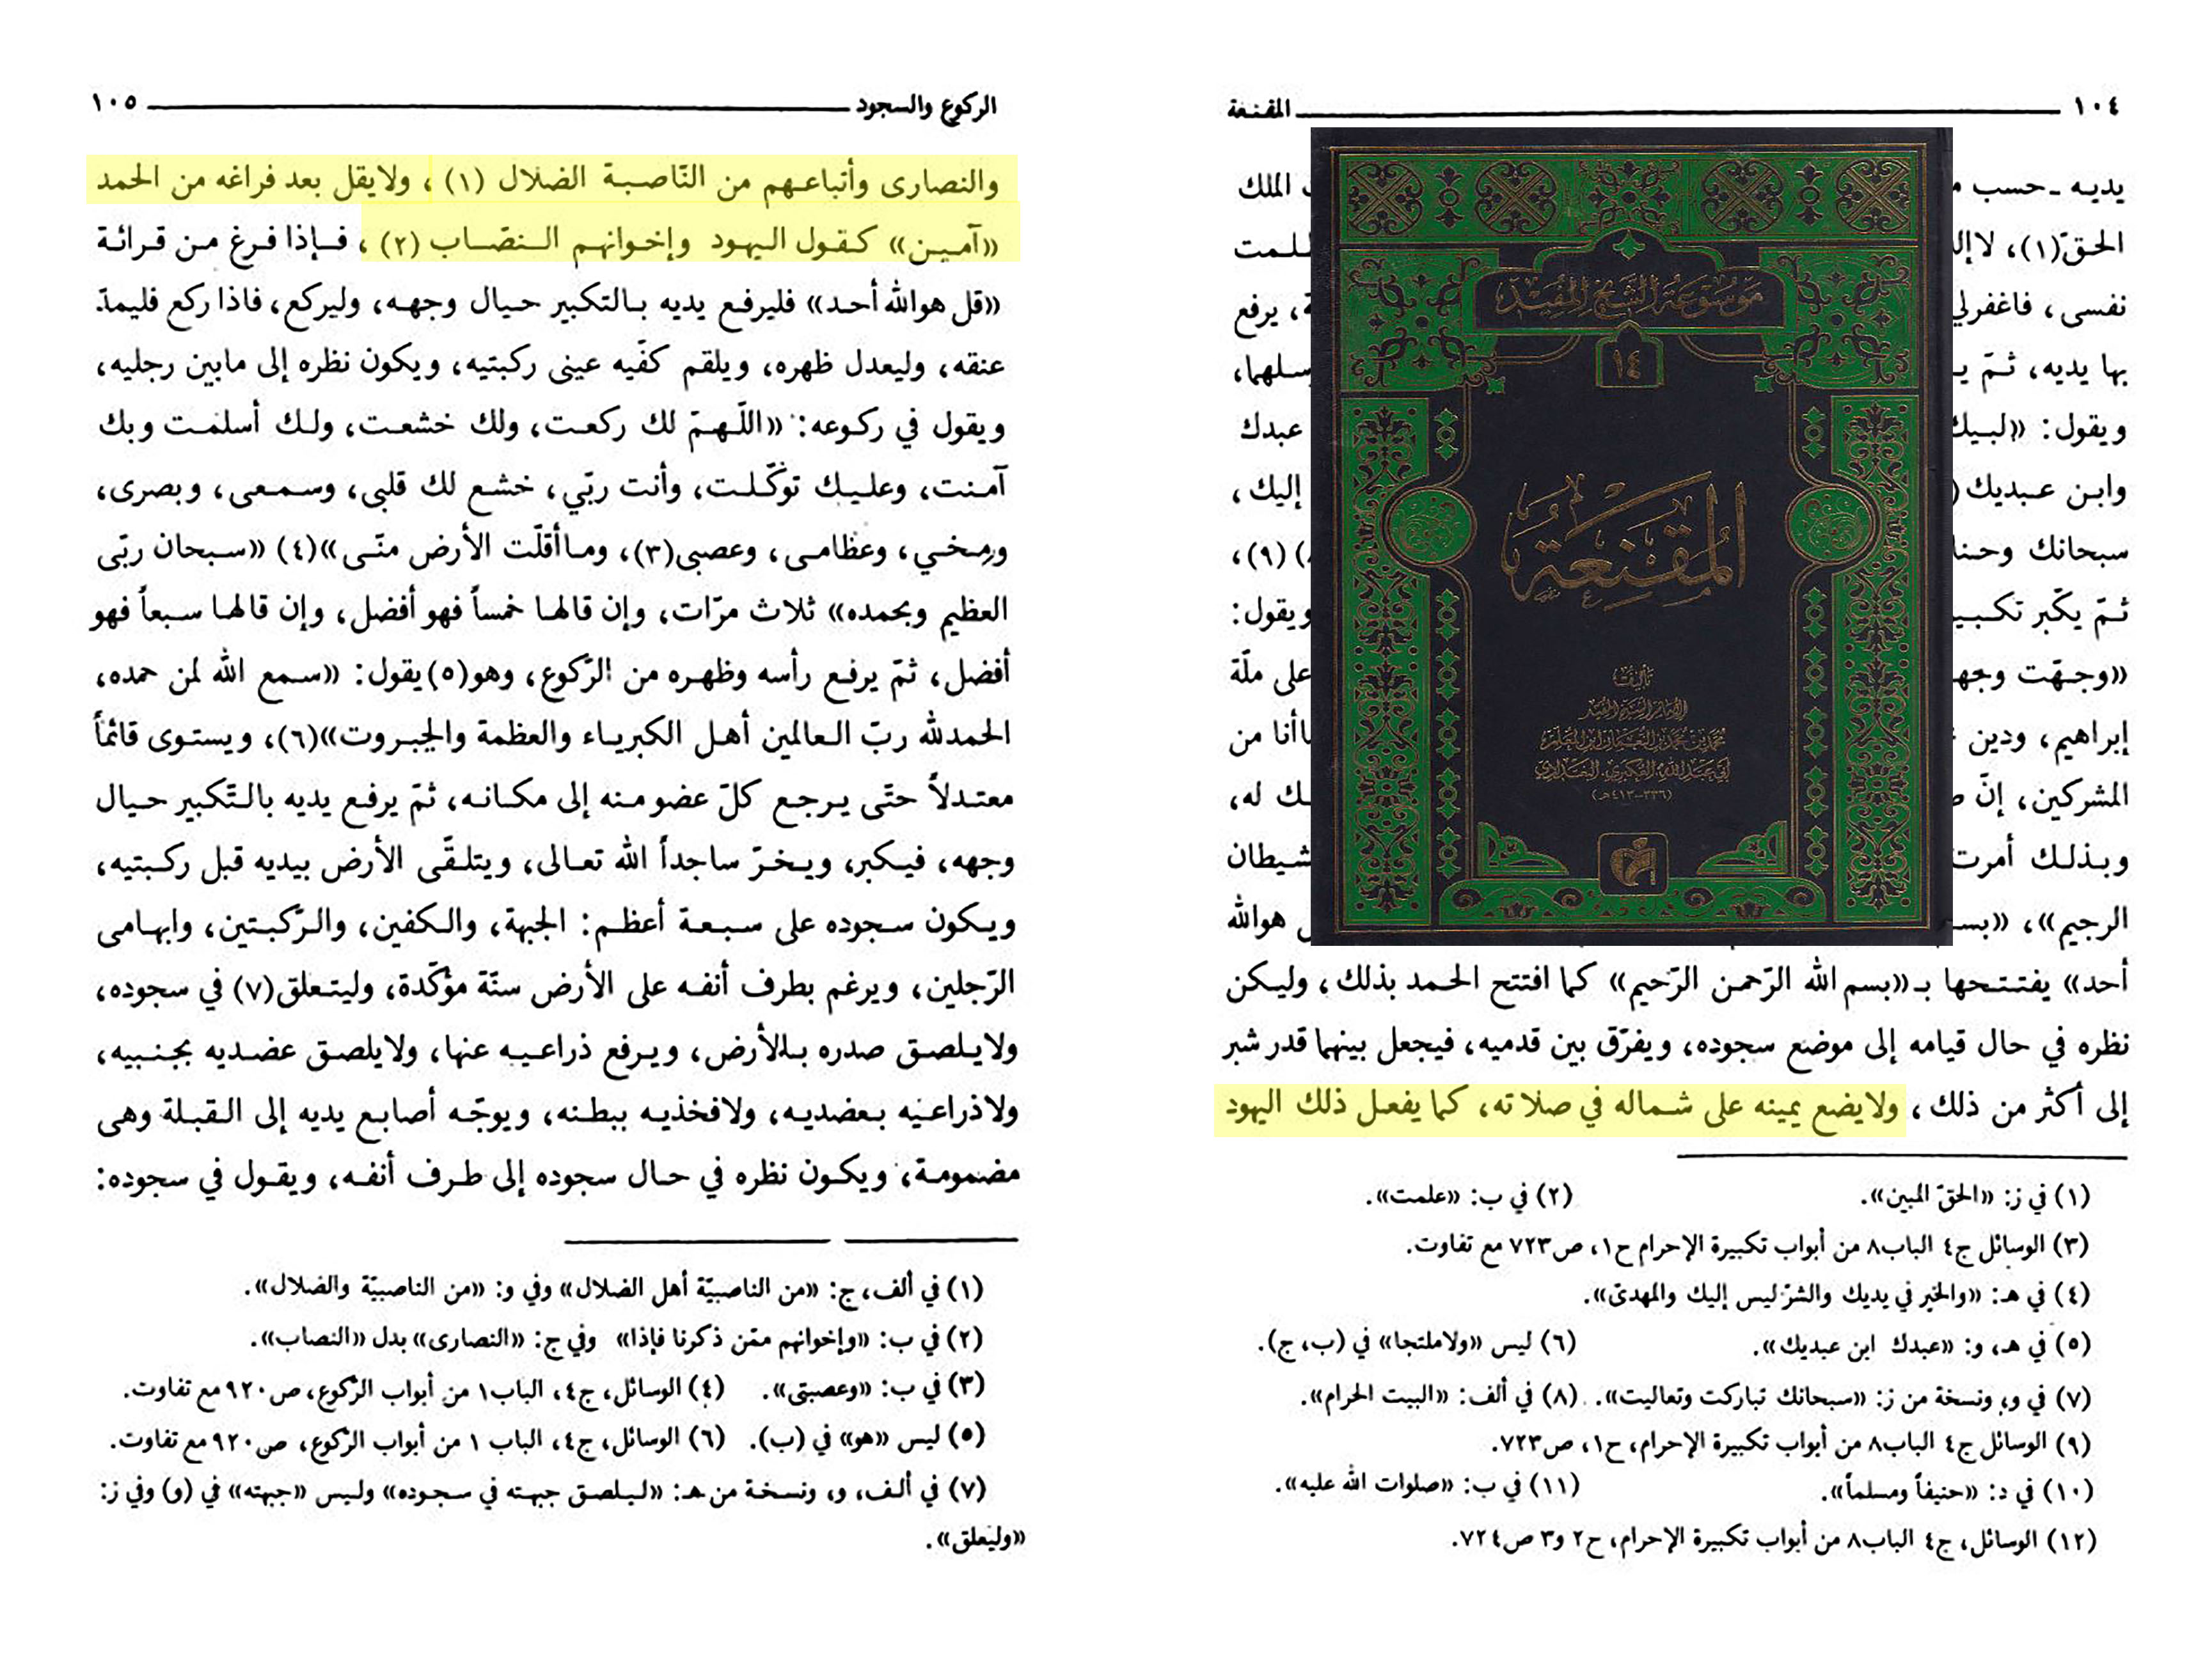 ١٠٤ المقنعة
يديه ـ حسب الملك
الحقّ(١)، لا إله ظلمت
نفسى، فاغفرلي يرفع
بها يديه، ثمّ
ويقول: «لبيك عبدك
وابن عبديك إليك،
سبحانك (٩)،
ثمّ يكبّر ويقول:
«وجهت على ملّة
إبراهيم، ودين أنا من
المشركين، إنّ له،
وبذلك أمرت
الرجيم»، هوالله
أحد» يفتتحها بـ«بسم الله الرّحمن الرّحيم» كما افتتح الحمد بذلك، وليكن
نظره في حال قيامه إلى موضع سجوده، ويفرّق بين قدميه، فيجعل بينهما قدر شبر
إلى أكثر من ذلك، ولايضع يمينه على شماله في صلاته، كما يفعل ذلك اليهود
(١) في ز: «الحقّ المبين». (٢) في ب: «علمت».
(٣) الوسائل ج٤ الباب٨ من أبواب تكبيرة الإحرام ح١، ص٧٢٣ مع تفاوت.
(٤) في هـ: «والخير في يديك والشرّ ليس إليك والمهدىّ».
(٥) في هـ، و: «عبدك ابن عبديك». (٦) ليس «ولاملتجا» في (ب، ج).
(٧) في و، ونسخة من ز: «سبحانك تباركت وتعاليت». (٨) في ألف: «البيت الحرام».
(٩) الوسائل ج٤ الباب٨ من أبواب تكبيرة الإحرام، ح١، ص٧٢٣.
(١٠) في د: «حنيفاً ومسلماً». (١١) في ب: «صلوات الله عليه».
(١٢) الوسائل، ج٤ الباب٨ من أبواب تكبيرة الإحرام، ح٢ و٣ ص٧٢٤.
موسوعة الشيخ المفيد
١٤
المقنعة
تأليف
الإمام الشيخ المفيد
محمد بن محمد بن النعمان ابن المعلم
أبي عبدالله العكبري، البغدادي
(٣٣٦-٤١٣هـ)
الركوع والسجود ١٠٥
والنصارى وأتباعهم من النّاصبة الضلال (١)، ولايقل بعد فراغه من الحمد
«آمين» كقول اليهود وإخوانهم النصّاب (٢)، فإذا فرغ من قرائة
«قل هوالله أحد» فليرفع يديه بالتكبير حيال وجهه، وليركع، فاذا ركع فليمدّ
عنقه، وليعدل ظهره، ويلقم كفّيه عينى ركبتيه، ويكون نظره إلى مابين رجليه،
ويقول في ركوعه: «اللّهمّ لك ركعت، ولك خشعت، ولك أسلمت وبك
آمنت، وعليك توكّلت، وأنت ربّي، خشع لك قلبى، وسمعى، وبصرى،
ومخي، وعظامى، وعصبى(٣)، وماأقلّت الأرض منّى»(٤) «سبحان ربّى
العظيم وبحمده» ثلاث مرّات، وإن قالها خمساً فهو أفضل، وإن قالها سبعاً فهو
أفضل، ثمّ يرفع رأسه وظهره من الرّكوع، وهو(٥)يقول: «سمع الله لمن حمده،
الحمدلله ربّ العالمين أهل الكبرياء والعظمة والجبروت»(٦)، ويستوى قائماً
معتدلاً حتّى يرجع كلّ عضو منه إلى مكانه، ثمّ يرفع يديه بالتّكبير حيال
وجهه، فيكبر، ويخرّ ساجداً الله تعالى، ويتلقّى الأرض بيديه قبل ركبتيه،
ويكون سجوده على سبعة أعظم: الجبهة، والكفين، والرّكبتين، وابهامى
الرّجلين، ويرغم بطرف أنفه على الأرض سنّة مؤكّدة، وليتعلق(٧) في سجوده،
ولايلصق صدره بالأرض، ويرفع ذراعيه عنها، ولايلصق عضديه بجنبيه،
ولاذراعيه بعضديه، ولافخذيه ببطنه، ويوجّه أصابع يديه إلى القبلة وهى
مضمومة، ويكون نظره في حال سجوده إلى طرف أنفه، ويقول في سجوده:
(١) في ألف، ج: «من الناصبيّة أهل الضلال» وفي و: «من الناصبيّة والضلال».
(٢) في ب: «وإخوانهم ممّن ذكرنا فإذا» وفي ج: «النصارى» بدل «النصاب».
(٣) في ب: «وعصبتى». (٤) الوسائل، ج٤، الباب١ من أبواب الرّكوع، ص٩٢٠ مع تفاوت.
(٥) ليس «هو» في (ب). (٦) الوسائل، ج٤، الباب ١ من أبواب الرّكوع، ص٩٢٠ مع تفاوت.
(٧) في ألف، و، ونسخة من هـ: «ليلصق جبهته في سجوده» وليس «جبهته» في (و) وفي ز:
«وليعلق».